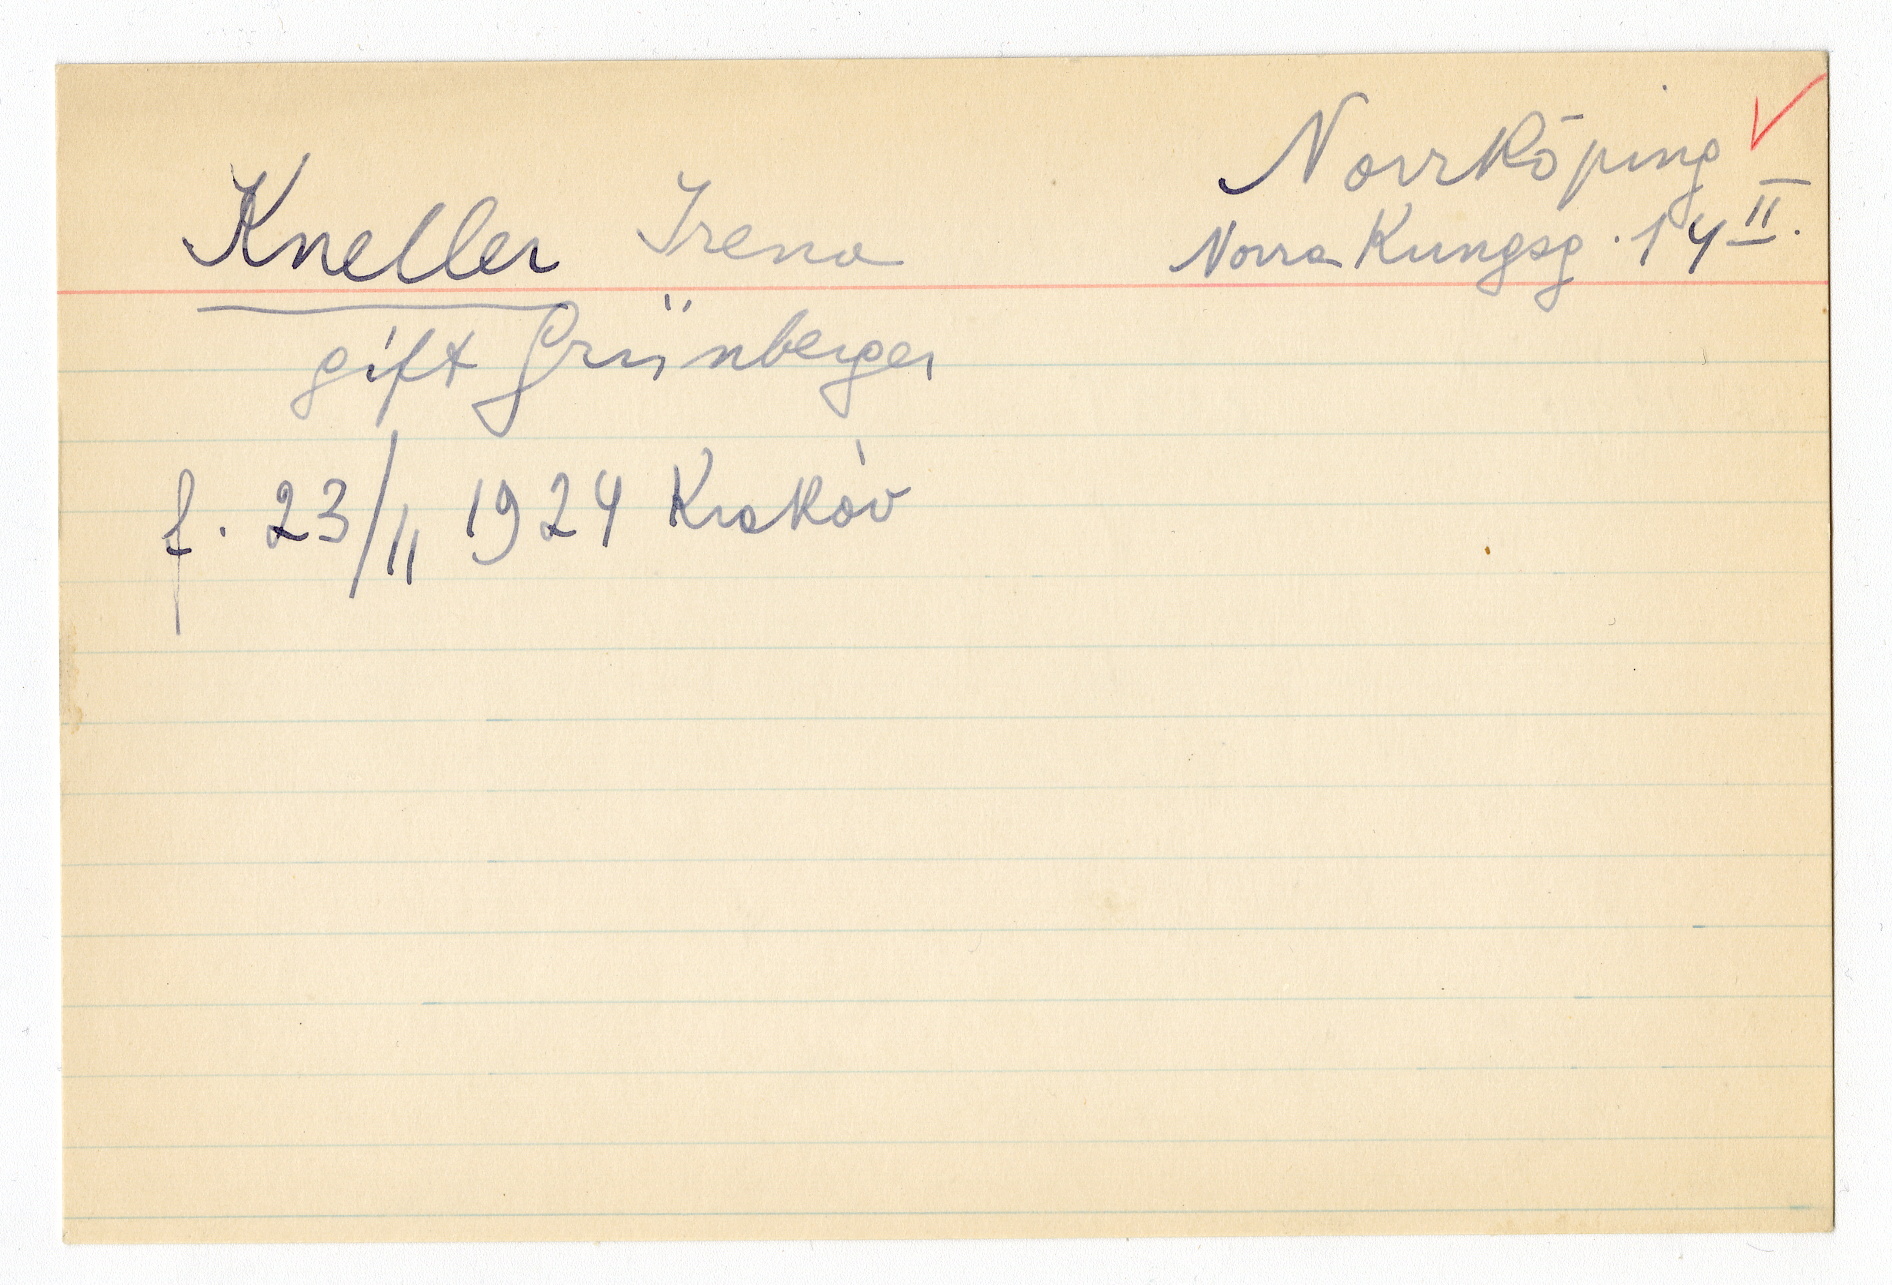 Norrköping
Kneller Irena
Norra Kungsg. 14 II.
gift Grünberger
f. 23/11 1924 Kraków